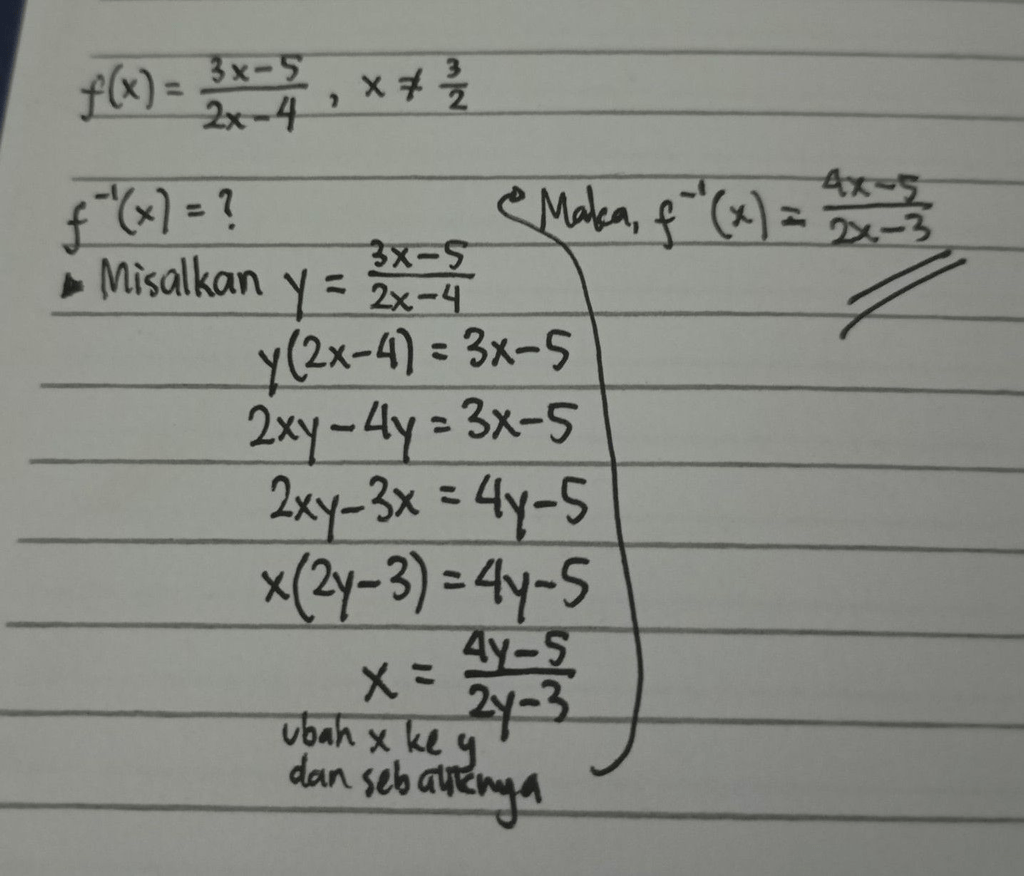 f(x) = (3x-5)/(2x-4) , x ≠ 3/2
f⁻¹(x) = ?
Misalkan y = (3x-5)/(2x-4)
y(2x-4) = 3x-5
2xy-4y = 3x-5
2xy-3x = 4y-5
x(2y-3) = 4y-5
x = (4y-5)/(2y-3)
ubah x ke y
dan sebaliknya
Maka, f⁻¹(x) = (4x-5)/(2x-3)